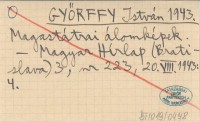 GYÖRFFY István 1943.
Magastátrai álomképek.
— Magyar Hírlap (Brati-
slava) 3, nr 223, 20.VIII.1943:
4.